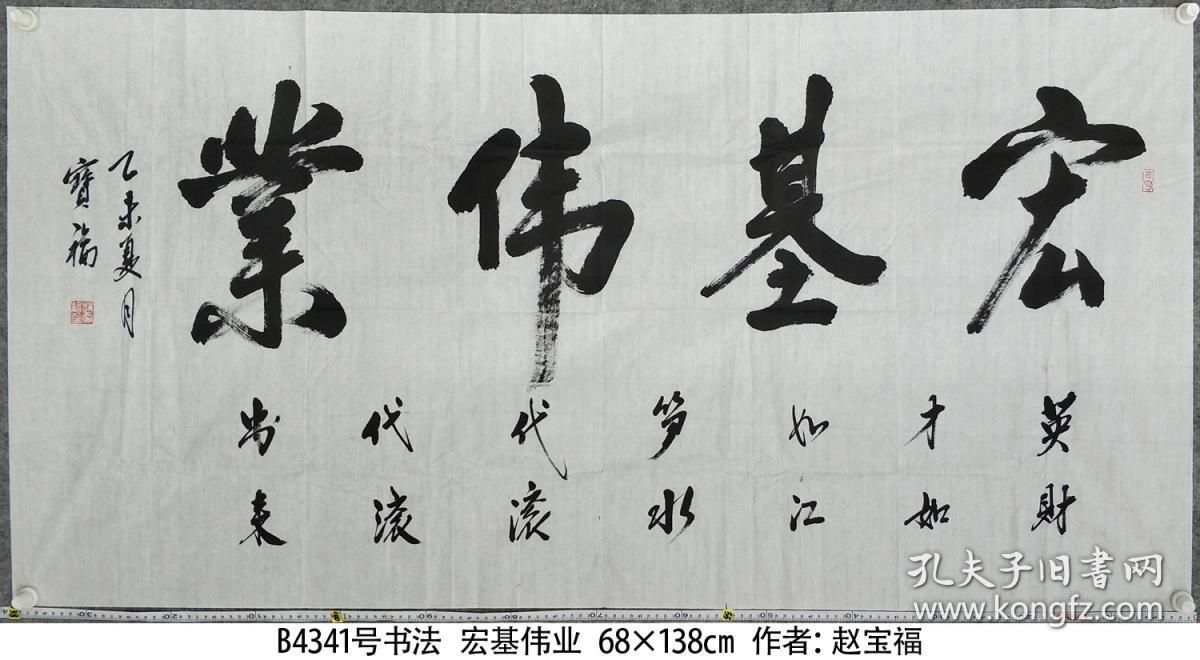 宏基伟業
英才如笋代代出
財如江水滚滚来
乙未夏月
寶福
孔夫子旧书网
www.kongfz.com
B4341号书法 宏基伟业 68×138cm 作者: 赵宝福